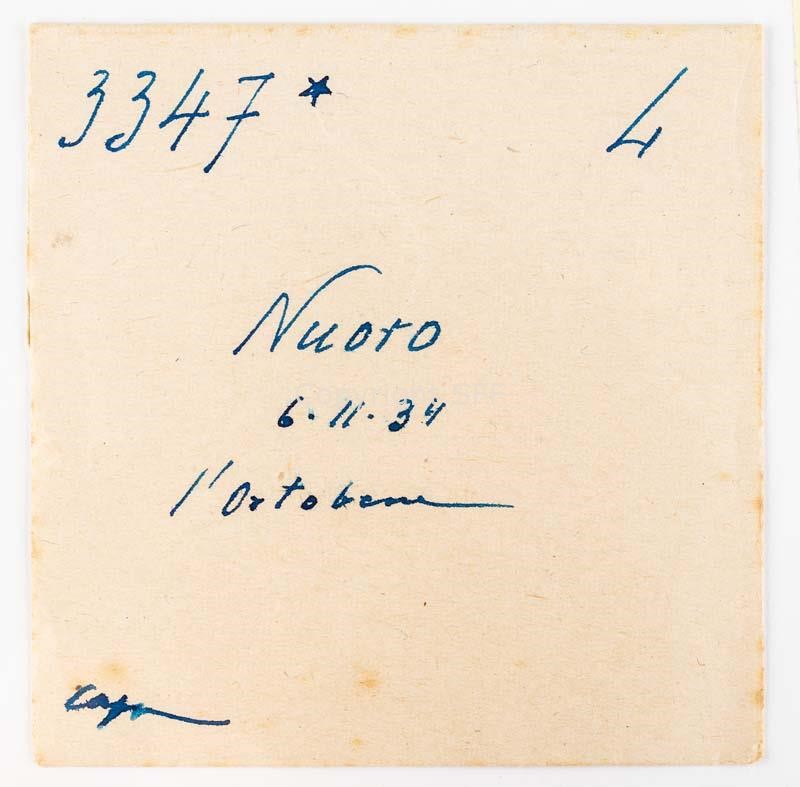 3347* 4
Nuoro
6-11-34
l'Ortobene